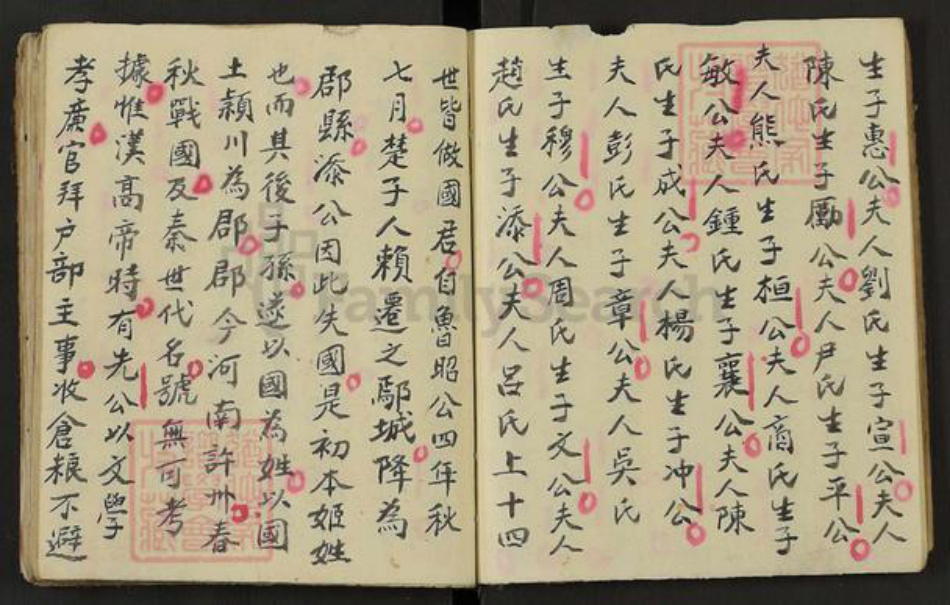 生子惠公夫人劉氏生子宣公夫人
陳氏生子厲公夫人尹氏生子平公
夫人熊氏生子桓公夫人商氏生子
敏公夫人鍾氏生子襄公夫人陳
氏生子成公夫人楊氏生子冲公
夫人彭氏生子章公夫人吳氏
生子穆公夫人周氏生子文公夫人
趙氏生子添公夫人呂氏上十四
世皆做國君自魯昭公四年秋
七月楚子人賴遷之鄢城降為
郡縣添公因此失國是初本姬姓
也而其後子孫遂以國為姓以國
土穎川為郡郡今河南許州春
秋戰國及秦世代名號無可考
據惟漢高帝時有先公以文學
孝廣官拜户部主事收倉粮不避
FamilySearch